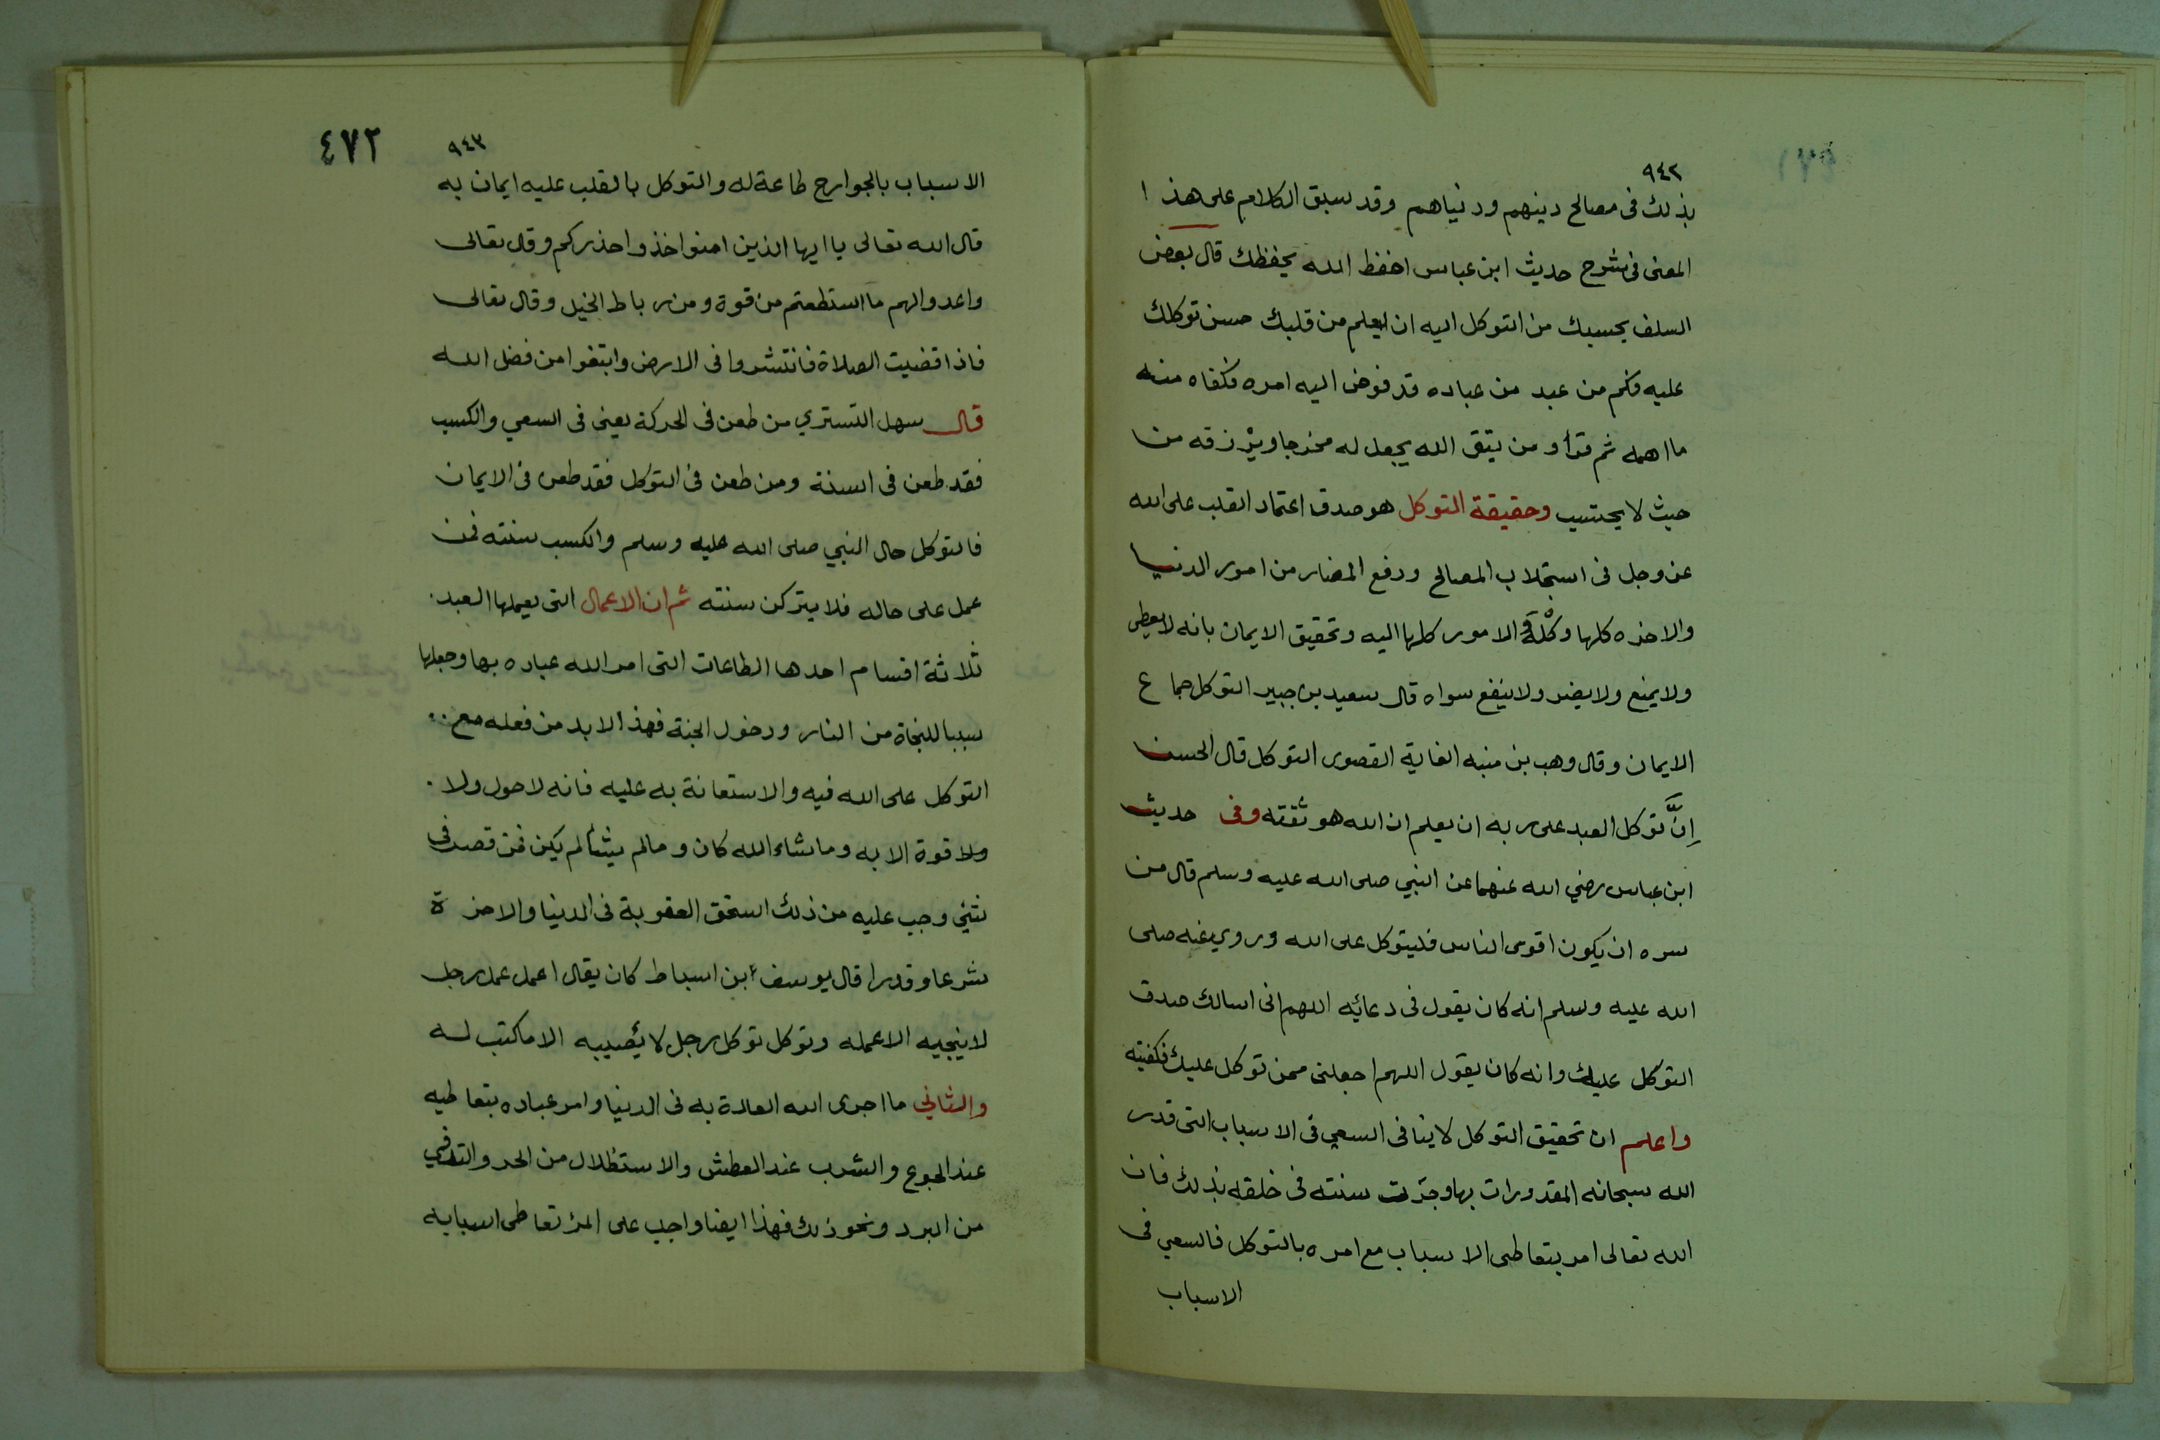 ٩٤٢
بذلك فى مصالح دينهم ودنياهم وقد سبق الكلام على هذا
المعنى فى شرح حديث ابن عباس احفظ الله يحفظك قال بعض
السلف بحسبك من التوكل اليه ان يعلم من قلبك حسن توكلك
عليه فكم من عبد من عباده قد فوض اليه امره فكفاه منه
ما اهمه ثم قرأ ومن يتق الله يجعل له مخرجا ويرزقه من
حيث لا يحتسب وحقيقة التوكل هو صدق اعتماد القلب على الله
عز وجل فى استجلاب المصالح ودفع المضار من امور الدنيا
والاخره كلها وكلة الامور كلها اليه وتحقيق الايمان بانه لا يعطى
ولا يمنع ولا يضر ولا ينفع سواه قال سعيد بن جبير التوكل جماع
الايمان وقال وهب بن منبه الغاية القصوى التوكل قال الحسن
إنَّ توكل العبد على ربه ان يعلم ان الله هو ثقته وفى حديث
ابن عباس رضي الله عنهما عن النبي صلى الله عليه وسلم قال من
سره ان يكون اقوى الناس فليتوكل على الله وروي عنه صلى
الله عليه وسلم انه كان يقول فى دعائه اللهم انى اسالك صدق
التوكل عليك وانه كان يقول اللهم اجعلنى ممن توكل عليك فكفيته
واعلم ان تحقيق التوكل لا ينافى السعي فى الاسباب التى قدر
الله سبحانه المقدورات بها وجرت سنته فى خلقه بذلك فان
الله تعالى امر بتعاطى الاسباب مع امره بالتوكل فالسعي فى
الاسباب
٤٧٢
٩٤٣
الاسباب بالجوارح طاعة له والتوكل بالقلب عليه ايمان به
قال الله تعالى يا ايها الذين امنوا خذوا حذركم وقال تعالى
واعدوا لهم ما استطعتم من قوة ومن رباط الخيل وقال تعالى
فاذا قضيت الصلاة فانتشروا فى الارض وابتغوا من فضل الله
قال سهل التستري من طعن فى الحركة يعنى فى السعي والكسب
فقد طعن فى السنة ومن طعن فى التوكل فقد طعن فى الايمان
فالتوكل حال النبي صلى الله عليه وسلم والكسب سنته فمن
عمل على حاله فلا يتركن سنته ثم ان الاعمال التى يعملها العبد
ثلاثة اقسام احدها الطاعات التى امر الله عباده بها وجعلها
سببا للنجاة من النار ودخول الجنة فهذا لابد من فعله مع
التوكل على الله فيه والاستعانة به عليه فانه لا حول ولا
ولا قوة الا به وما شاء الله كان وما لم يشأ لم يكن فمن قصر فى
شيئ وجب عليه من ذلك استحق العقوبة فى الدنيا والاخرة
شرعا وقدرا قال يوسف ابن اسباط كان يقال اعمل عمل رجل
لا ينجيه الا عمله وتوكل توكل رجل لا يُصيبه الا ما كتب له
والثاني ما اجرى الله العادة به فى الدنيا وامر عباده بتعاطيه
عند الجوع والشرب عند العطش والاستظلال من الحر والتدفي
من البرد ونحو ذلك فهذا ايضا واجب على المرء تعاطى اسبابه